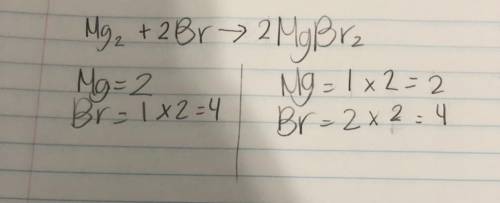 Mg₂ + 2Br → 2MgBr₂
Mg = 2
Br = 1 × 2 = 4
Mg = 1 × 2 = 2
Br = 2 × 2 = 4